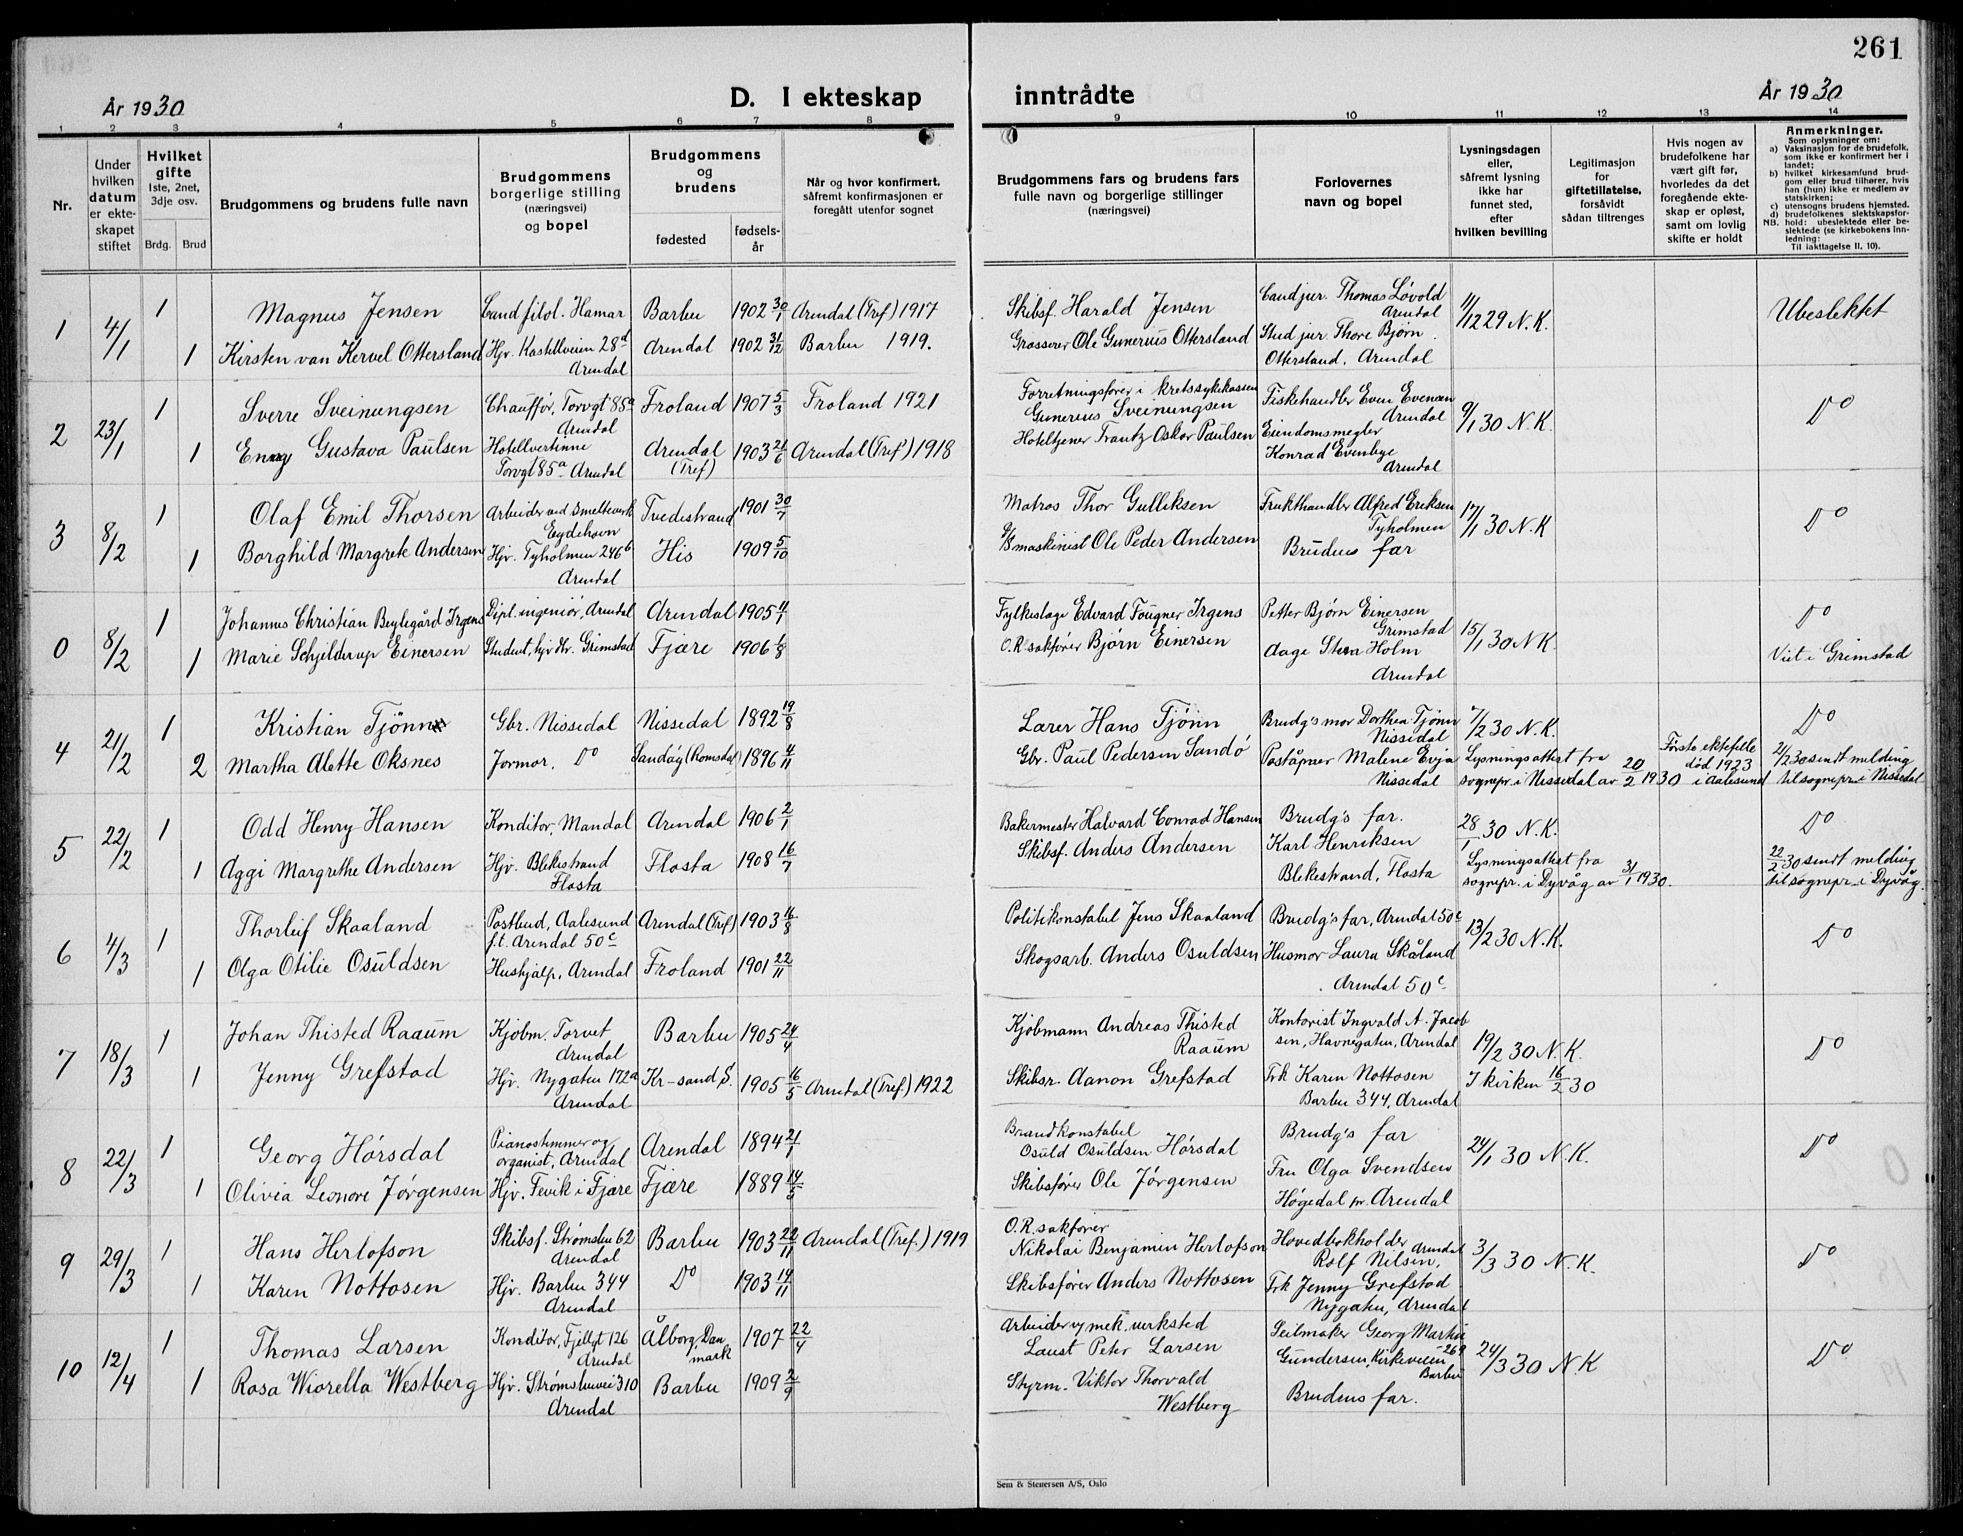 261
År 1930
D. I ekteskap inntrådte
År 1930
1 2 3 4 5 6 7 8 9 10 11 12 13 14
Nr.
Under hvilken datum er ekteskapet stiftet
Hvilket gifte
1ste, 2net, 3dje osv.
Brdg. Brud
Brudgommens og brudens fulle navn
Brudgommens borgerlige stilling (næringsvei) og bopel
Brudgommens og brudens
fødested
fødsels-år
Når og hvor konfirmert, såfremt konfirmasjonen er foregått utenfor sognet
Brudgommens fars og brudens fars fulle navn og borgerlige stillinger (næringsvei)
Forlovernes navn og bopel
Lysningsdagen eller, såfremt lysning ikke har funnet sted, efter hvilken bevilling
Legitimasjon for giftetillatelse, forsåvidt sådan tiltrenges
Hvis nogen av brudefolkene har vært gift før, hvorledes da det foregående ekteskap er opløst, samt om lovlig skifte er holdt
Anmerkninger.
Som oplysninger om:
a) Vaksinasjon for de brudefolk, som ikke er konfirmert her i landet;
b) hvilket kirkesamfund brudgom eller brud tilhører, hvis han (hun) ikke er medlem av statskirken;
c) utensogns brudens hjemsted.
d) brudefolkenes slektskapsforhold: ubeslektede eller beslektede (se kirkebokens innledning:
NB.
Til iakttagelse II. 10).
1 4/1 1 Magnus Jensen Cand filol. Hamar Barbu 1902 30/1 Arendal (Tref) 1917 Skibsf. Harald Jensen Cand jur. Thomas Løvold Arendal 11/12 29 N.K. Ubeslektet
1 Kirsten van Kervel Ottersland Hjv. Kastellveien 28d Arendal Arendal 1902 31/12 Barbu 1919. Grosserer Ole Gunerius Ottersland Stud jur. Thore Bjørn Ottersland. Arendal
2 23/1 1 Sverre Sveinungsen Chauffør, Torvgt 85a Arendal Froland 1907 5/3 Froland 1921 Forretningsfører i kretssykekassen Gunerius Sveinungsen Fiskehandler Even Evensen Arendal 9/1 30 N.K. Do
1 Enny Gustava Paulsen Hotellvertinne Torvgt 85a Arendal Arendal (Tref) 1903 21/6 Arendal (Tref) 1918 Hoteltjener Frantz Oskar Paulsen Eiendomsmegler Konrad Evenbye Arendal
3 8/2 1 Olaf Emil Thorsen Arbeider ved Smelteverk Eydehavn Tvedestrand 1901 30/7 Matros Thor Gulliksen Frukthandler Alfred Eriksen Tyholmen 17/1 30 N.K Do
1 Borghild Margrete Andersen Hjv. Tyholmen 246b Arendal His 1909 5/10 maskinist Ole Peder Andersen Brudens far
0 8/2 1 Johannes Christian Beylegård Irgens Dipl. ingeniør, Arendal Arendal 1905 Fylkeslæge Edvard Fougner Irgens Petter Bjørn Einersen Grimstad 15/1 30 N.K. Do
1 Marie Schjelderup Einersen Student, hjv Hr. Grimstad Fjære 1906 O.R. sakfører Bjørn Einersen Aage Holm Arendal Viet i Grimstad
4 21/2 1 Kristian Tjønn Gbr. Nissedal Nissedal 1892 19/8 Lærer Hans Tjønn Brudg's mor Dorthea Tjønn Nissedal 7/2 30 N.K. Do
2 Martha Alette Oksnes Jormor. Do Sandøy (Romsdal) 1896 4/11 Gbr. Paul Pedersen Sandø Poståpner Malene Evja Nissedal Lysningsattest fra sognepr. i Nissedal av 20/2 1930 Første ektefelle død 1923 i Aalesund 21/2 30 sendt melding til sognepr. i Nissedal
5 22/2 1 Odd Henry Hansen Konditor, Mandal Arendal 1906 2/1 Bakermester Halvard Conrad Hansen Brudg's far. 28/1 30 N.K. Do
1 Aggi Margrethe Andersen Hjv. Blekestrand Flosta Flosta 1908 16/7 Skibsf. Anders Andersen Karl Henriksen Blekestrand, Flosta Lysningsattest fra sognepr. i Dyvåg av 31/1 1930. 22/2 30 sendt melding til sognepr. i Dyvåg.
6 4/3 1 Thorleif Skaaland Postbud, Aalesund f.t. Arendal 50c Arendal (Tref) 1903 16/8 Politikonstabel Jens Skaaland Brudg's far, Arendal 50c 13/2 30 N.K. Do
1 Olga Otilie Osuldsen Hushjælp, Arendal Froland 1901 22/11 Skogsarb. Anders Osuldsen Husmor Laura Skåland Arendal 50c
7 18/3 1 Johan Thisted Raaum Kjøbm. Torvet Arendal Barbu 1905 24/4 Kjøbmann Andreas Thisted Raaum Kontorist Ingvald A. Jacobsen, Havnegaten, Arendal 19/2 30 N.K. Do
1 Jenny Grefstad Hjv. Nygaten 172a Arendal Kr-sand S. 1905 16/5 Arendal (Tref) 1922 Skibsr. Aanon Grefstad Frk Karen Nottosen Barbu 344, Arendal I kirken 16/2 30
8 22/3 1 Georg Hørsdal Pianostemmer og organist, Arendal Arendal 1894 21/1 Brandkonstabel Osuld Osuldsen Hørsdal Brudg's far 24/1 30 N.K. Do
1 Olivia Leonore Jørgensen Hjv. Fevik i Fjære Fjære 1889 14/3 Skibsfører Ole Jørgensen Fru Olga Svendsen Høgedal pr. Arendal
9 29/3 1 Hans Herlofson Skibsf. Strømsbu 62 Arendal Barbu 1903 22/11 Arendal (Tref.) 1919 O.R. sakfører Nikolai Benjamin Herlofson Hovedbokholder Rolf Nilsen, Arendal 3/3 30 N.K. Do
1 Karen Nottosen Hjv. Barbu 344 Arendal Do 1903 14/11 Skibsfører Anders Nottosen Frk Jenny Grefstad Nygaten, Arendal
10 12/4 1 Thomas Larsen Konditor, Fjellgt 126 Arendal Ålborg, Danmark 1907 22/4 Arbeider v/ mek. verksted Laust Peter Larsen Seilmaker Georg Martin Gundersen, Kirkeveien 269 Barbu 24/3 30 N.K Do
1 Rosa Wiorella Westberg Hjv. Strømsbuvei 310 Arendal Barbu 1909 2/9 Styrm. Viktor Thorvald Westberg Brudens far.
Sem & Stenersen A/S, Oslo